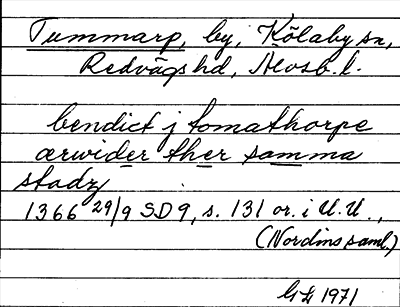 Tummarp, by, Kölaby sn,
Redvägs hd, Älvsb. l.
bendict j tomathorpe
ærwider ther samma
stadz
1366 29/9 SD 9, s. 131 or. i U.U.,
(Nordins saml.)
GL 1971